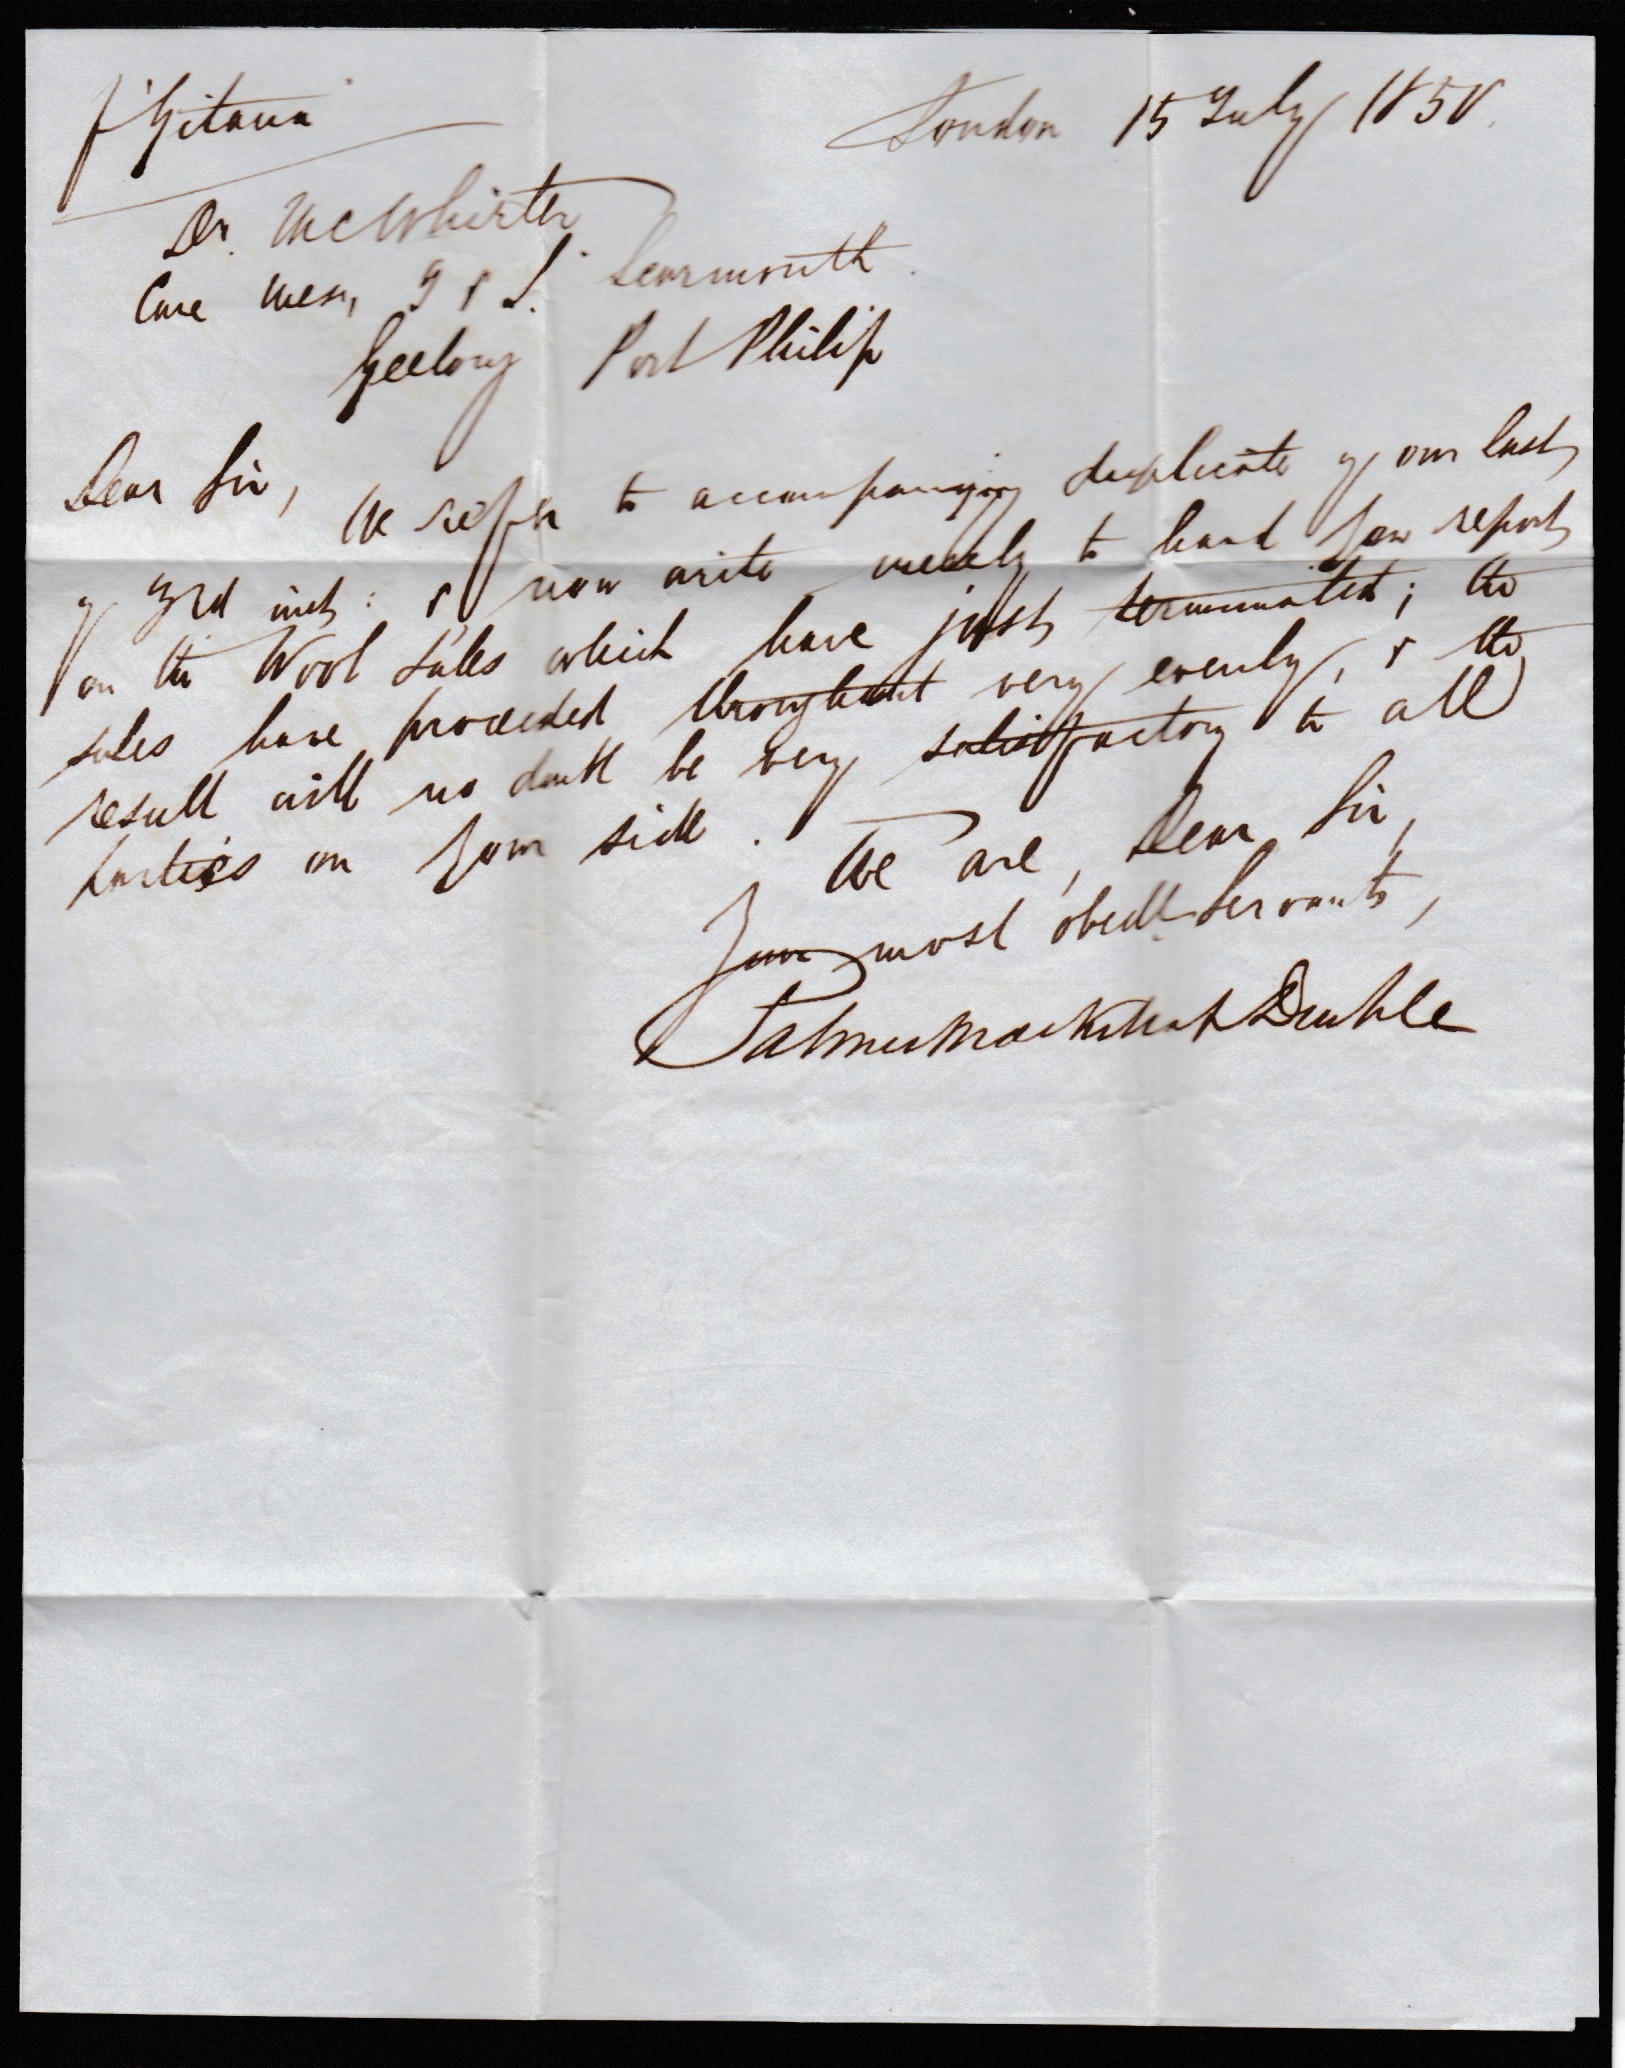 p "Gitana"
London 15 July 1850.
Dr. McWhirter
Care Messrs T & S. Learmonth.
Geelong Port Philip
Dear Sir,
We refer to accompanying duplicate of our last
of 3rd inst: & now write merely to hand you report
on the Wool Sales which have just terminated; the
sales have proceeded throughout very evenly, & the
result will no doubt be very satisfactory to all
parties on your side. We are, Dear Sir,
Your most obedt Servants,
Palmer Mackillop Dent & Co